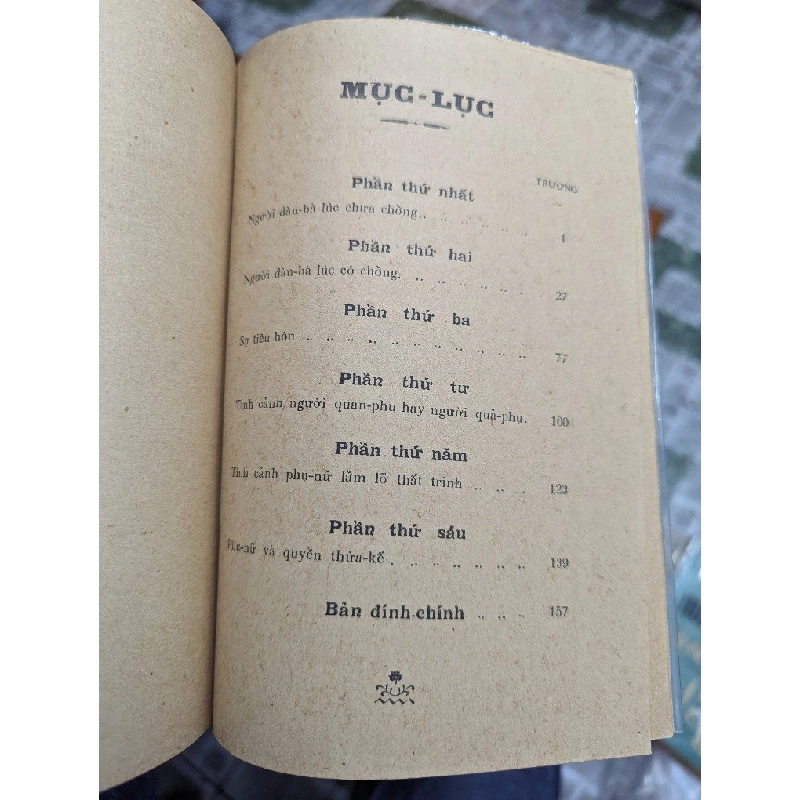 MỤC-LỤC
TRƯƠNG
Phần thứ nhất
Người đàn-bà lúc chưa chồng.. .. .. .. .. .. 1
Phần thứ hai
Người đàn-bà lúc có chồng. .. .. .. .. .. 27
Phần thứ ba
Sự tiêu hôn .. .. .. .. .. .. .. .. .. .. 77
Phần thứ tư
Tình cảnh người quan-phu hay người quả-phụ. 100
Phần thứ năm
Tình cảnh phụ-nữ lầm lỡ thất trinh .. .. .. 123
Phần thứ sáu
Phụ-nữ và quyền thừa-kế . .. .. .. .. .. .. 139
Bản đính-chính .. .. .. 157